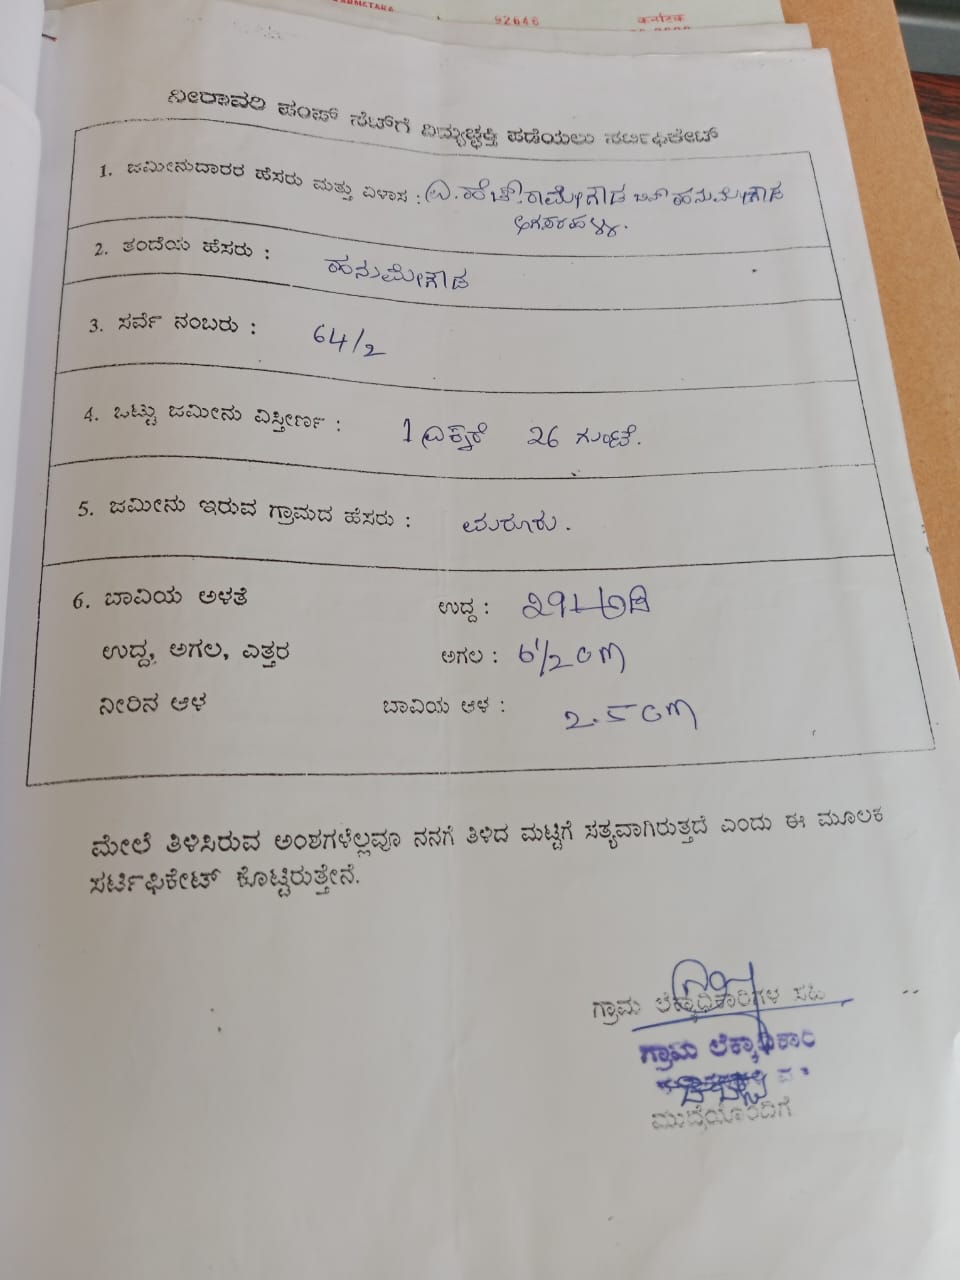 KARNATAKA
92646
कर्नाटक
ನೀರಾವರಿ ಪಂಪ್ ಸೆಟ್‌ಗೆ ವಿದ್ಯುಚ್ಛಕ್ತಿ ಪಡೆಯಲು ಸರ್ಟಿಫಿಕೇಟ್
1. ಜಮೀನುದಾರರ ಹೆಸರು ಮತ್ತು ವಿಳಾಸ : ಎ.ಹೆಚ್.ರಾಮೇಗೌಡ ಬಿನ್ ಹನುಮೇಗೌಡ
2. ತಂದೆಯ ಹೆಸರು : ಹನುಮೇಗೌಡ
3. ಸರ್ವೆ ನಂಬರು : 64/2
4. ಒಟ್ಟು ಜಮೀನು ವಿಸ್ತೀರ್ಣ : 1 ಎಕ್ಕರೆ 26 ಗುಂಟೆ.
5. ಜಮೀನು ಇರುವ ಗ್ರಾಮದ ಹೆಸರು : ಮರೂರು.
6. ಬಾವಿಯ ಅಳತೆ ಉದ್ದ : 291 ಅಡಿ
ಉದ್ದ, ಅಗಲ, ಎತ್ತರ ಅಗಲ : 6 1/2 cm
ನೀರಿನ ಆಳ ಬಾವಿಯ ಆಳ : 2.5 cm
ಮೇಲೆ ತಿಳಿಸಿರುವ ಅಂಶಗಳೆಲ್ಲವೂ ನನಗೆ ತಿಳಿದ ಮಟ್ಟಿಗೆ ಸತ್ಯವಾಗಿರುತ್ತದೆ ಎಂದು ಈ ಮೂಲಕ
ಸರ್ಟಿಫಿಕೇಟ್ ಕೊಟ್ಟಿರುತ್ತೇನೆ.
ಗ್ರಾಮ ಲೆಕ್ಕಾಧಿಕಾರಿಗಳ ಸಹಿ
ಗ್ರಾಮ ಲೆಕ್ಕಾಧಿಕಾರಿ
ಮುದ್ರೆಯೊಂದಿಗೆ